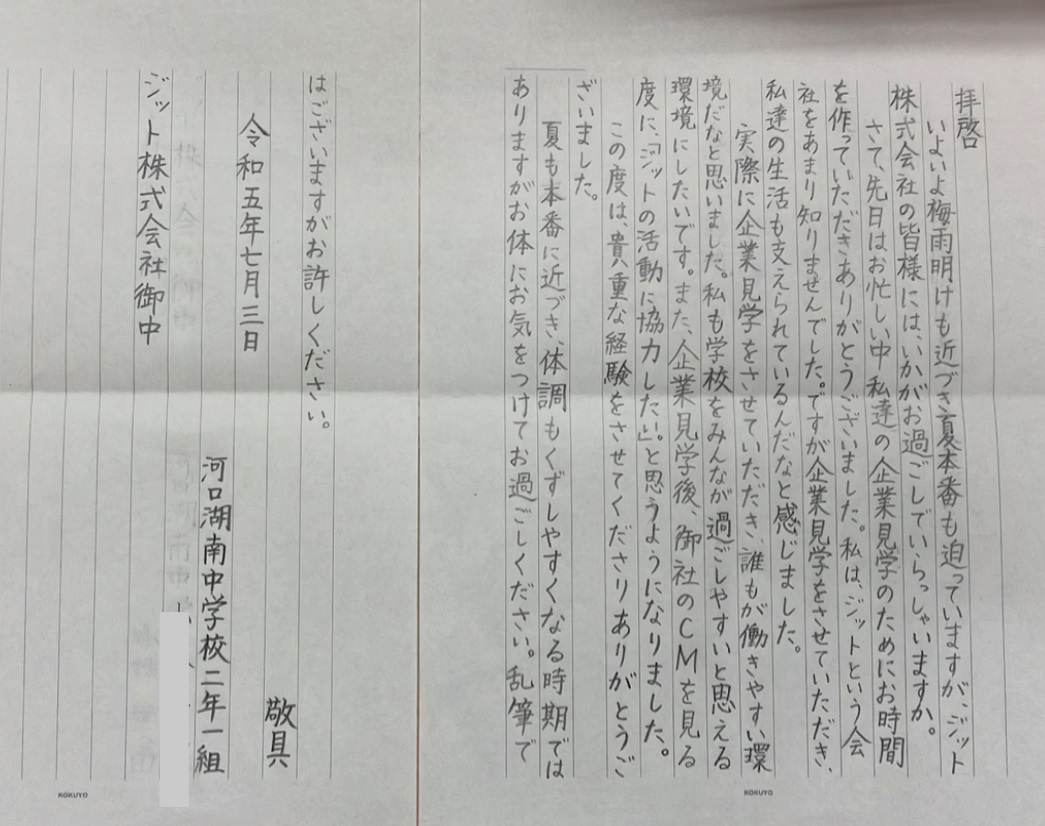 拝啓
いよいよ梅雨明けも近づき夏本番も迫っていますが、ジット
株式会社の皆様には、いかがお過ごしでいらっしゃいますか。
さて、先日はお忙しい中 私達の企業見学のためにお時間
を作っていただきありがとうございました。私は、ジットという会
社をあまり知りませんでした。ですが企業見学をさせていただき、
私達の生活も支えられているんだなと感じました。
実際に企業見学をさせていただき、誰もが働きやすい環
境だなと思いました。私も学校をみんなが過ごしやすいと思える
環境にしたいです。また、企業見学後、御社のCMを見る
度に、「ジットの活動に協力したい」。と思うようになりました。
この度は、貴重な経験をさせてくださりありがとうご
ざいました。
夏も本番に近づき、体調もくずしやすくなる時期では
ありますがお体にお気をつけてお過ごしください。乱筆で
はございますがお許しください。
敬具
令和五年七月三日
河口湖南中学校二年一組
ジット株式会社御中
KOKUYO
KOKUYO